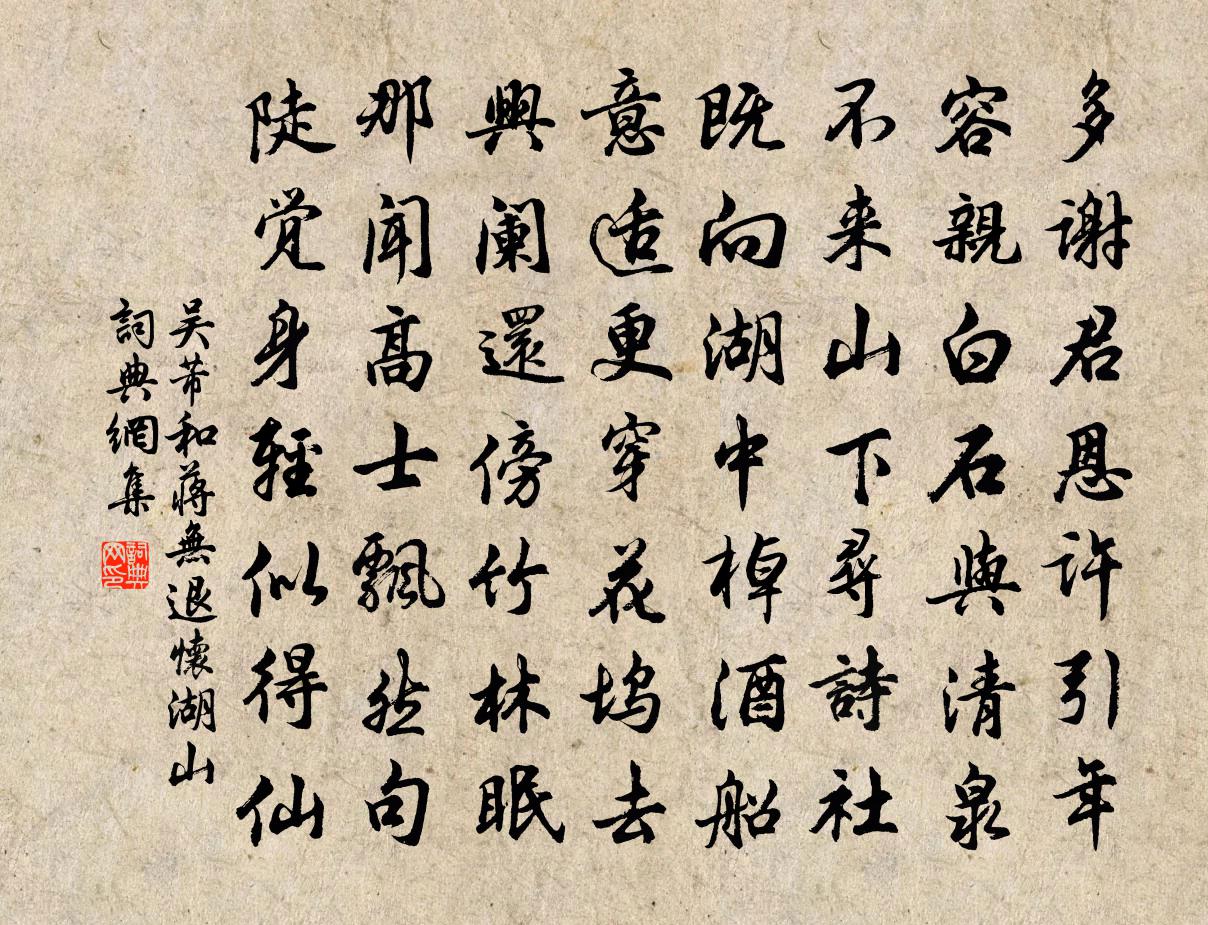 多謝君恩許引年
容親白石與清泉
不来山下尋詩社
既向湖中棹酒船
意适更穿花坞去
興阑還傍竹林眠
那闻高士飄然句
陡觉身輕似得仙
吴芾和蔣無退懷湖山
詞典網集
詞典网印